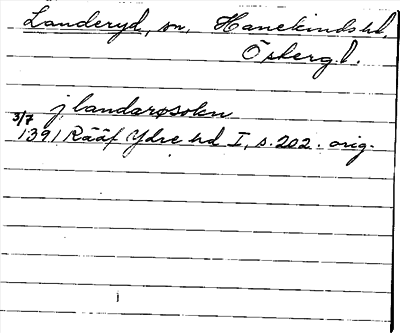 Landeryd, sn, Hanekinds hd,
Österg.l.
j landarøsokn
3/7
1391 Rääf Ydre hd I, s. 202. orig.